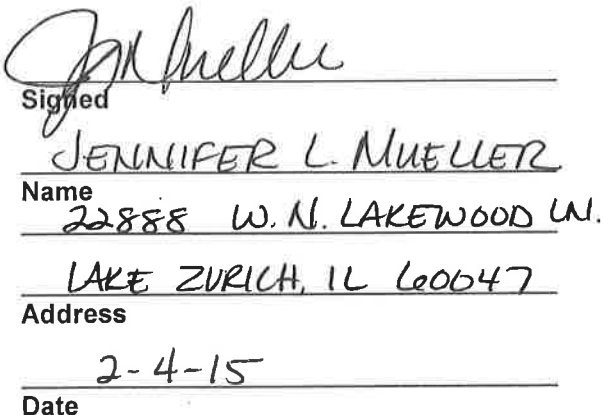 Signed
JENNIFER L. MUELLER
Name
22888 W. N. LAKEWOOD LN.
LAKE ZURICH, IL 60047
Address
2-4-15
Date